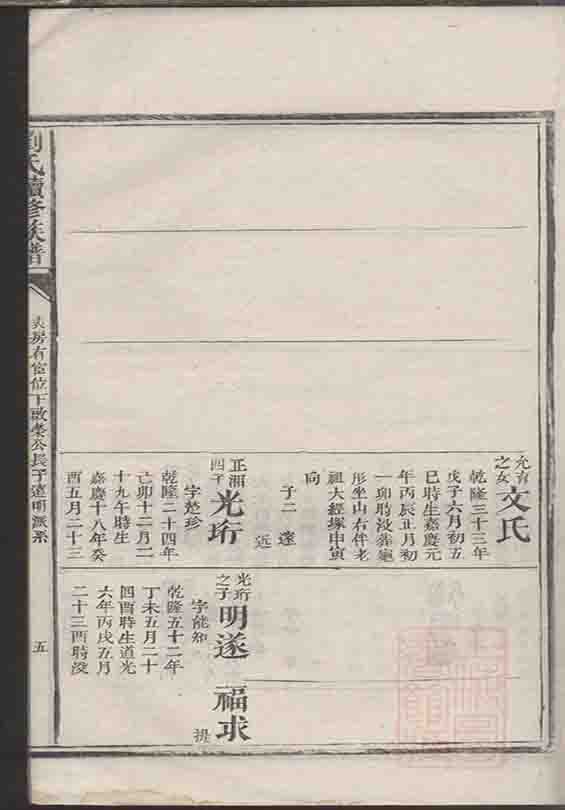 劉氏續修族譜
五
允育之女
文氏
乾隆三十三年
戊子六月初五
巳時生嘉慶元
年丙辰正月初
一卯時没葬鮑
形坐山右伴老
祖大經塚申寅
向
子二 達
近
正湘四子
光珩
字楚珍
乾隆二十四年
亡卯十二月二
十九午時生
嘉慶十八年癸
酉五月二十三
光珩之子
明遂
字能知
乾隆五十二年
丁未五月二十
四酉時生道光
六年丙戌五月
二十三酉時没
福求
提